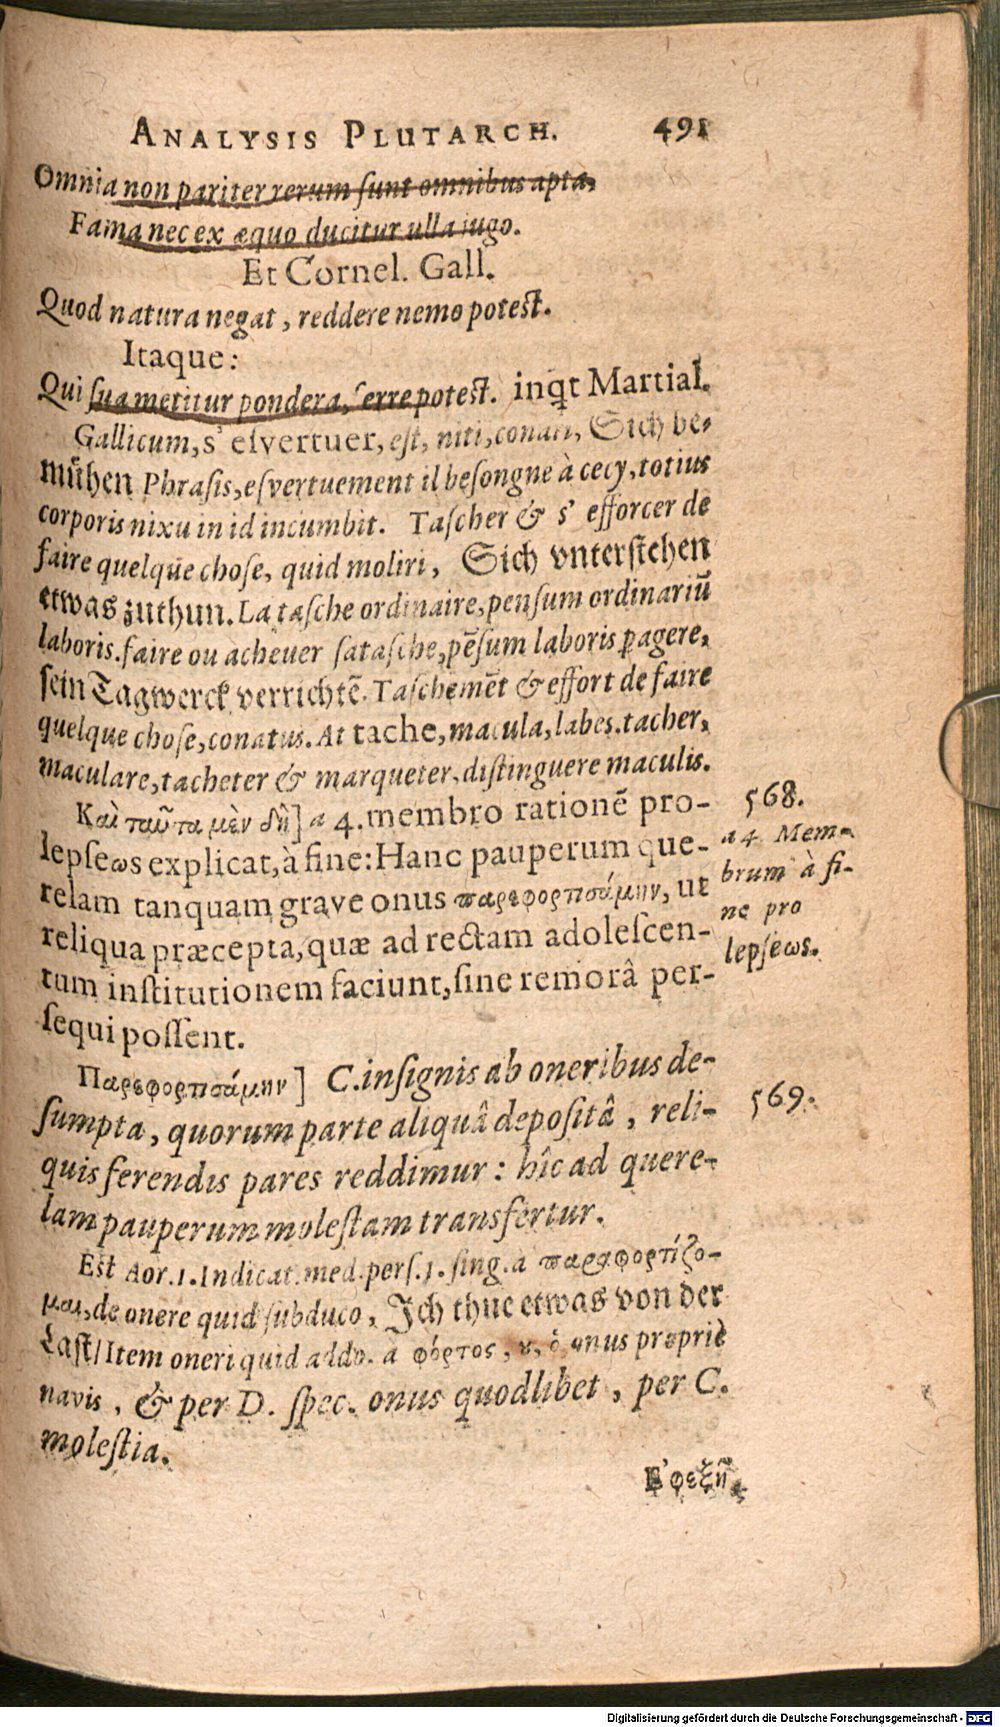 ANALYSIS PLUTARCH. 491
Omnia non pariter rerum sunt omnibus apta,
Fama nec ex æquo ducitur ulla iugo.
Et Cornel. Gall.
Quod natura negat, reddere nemo potest.
Itaque:
Qui sua metitur pondera, ferre potest. inqt Martial.
Gallicum, s' esvertuer, est, niti, conari, Sich be-
mühen Phrasis, esvertuement il besongne à cecy, totius
corporis nixu in id incumbit. Tascher & s' efforcer de
faire quelque chose, quid moliri, Sich vnterstehen
etwas zuthun. La tasche ordinaire, pensum ordinariũ
laboris. faire ou achever sa tasche, pẽsum laboris ꝑagere,
sein Tagwerck verrichtẽ. Taschemẽt & effort de faire
quelque chose, conatus. At tache, macula, labes. tacher,
maculare, tacheter & marqueter, distinguere maculis.
Καὶ ταῦτα μὲν δὴ] a 4. membro rationẽ pro-
lepseωs explicat, à fine: Hanc pauperum que-
relam tanquam grave onus παρεφορτισάμην, ut
reliqua præcepta, quæ ad rectam adolescen-
tum institutionem faciunt, sine remorâ per-
sequi possent.
568.
a 4 Mem-
brum à fi-
ne pro
lepseωs.
Παρεφορτισάμην] C. insignis ab oneribus de-
sumpta, quorum parte aliquâ depositâ, reli-
quis ferendis pares reddimur: hîc ad quere-
lam pauperum molestam transfertur.
569.
Est Aor. 1. Indicat. med. pers. 1. sing. a παραφορτίζο-
μαι, de onere quid subduco, Ich thue etwas von der
Last/ Item oneri quid addo. a φόρτος, ου, ὁ, onus propriè
navis, & per D. spec. onus quodlibet, per C.
molestia.
Ε᾿φεξῆς
Digitalisierung gefördert durch die Deutsche Forschungsgemeinschaft - DFG